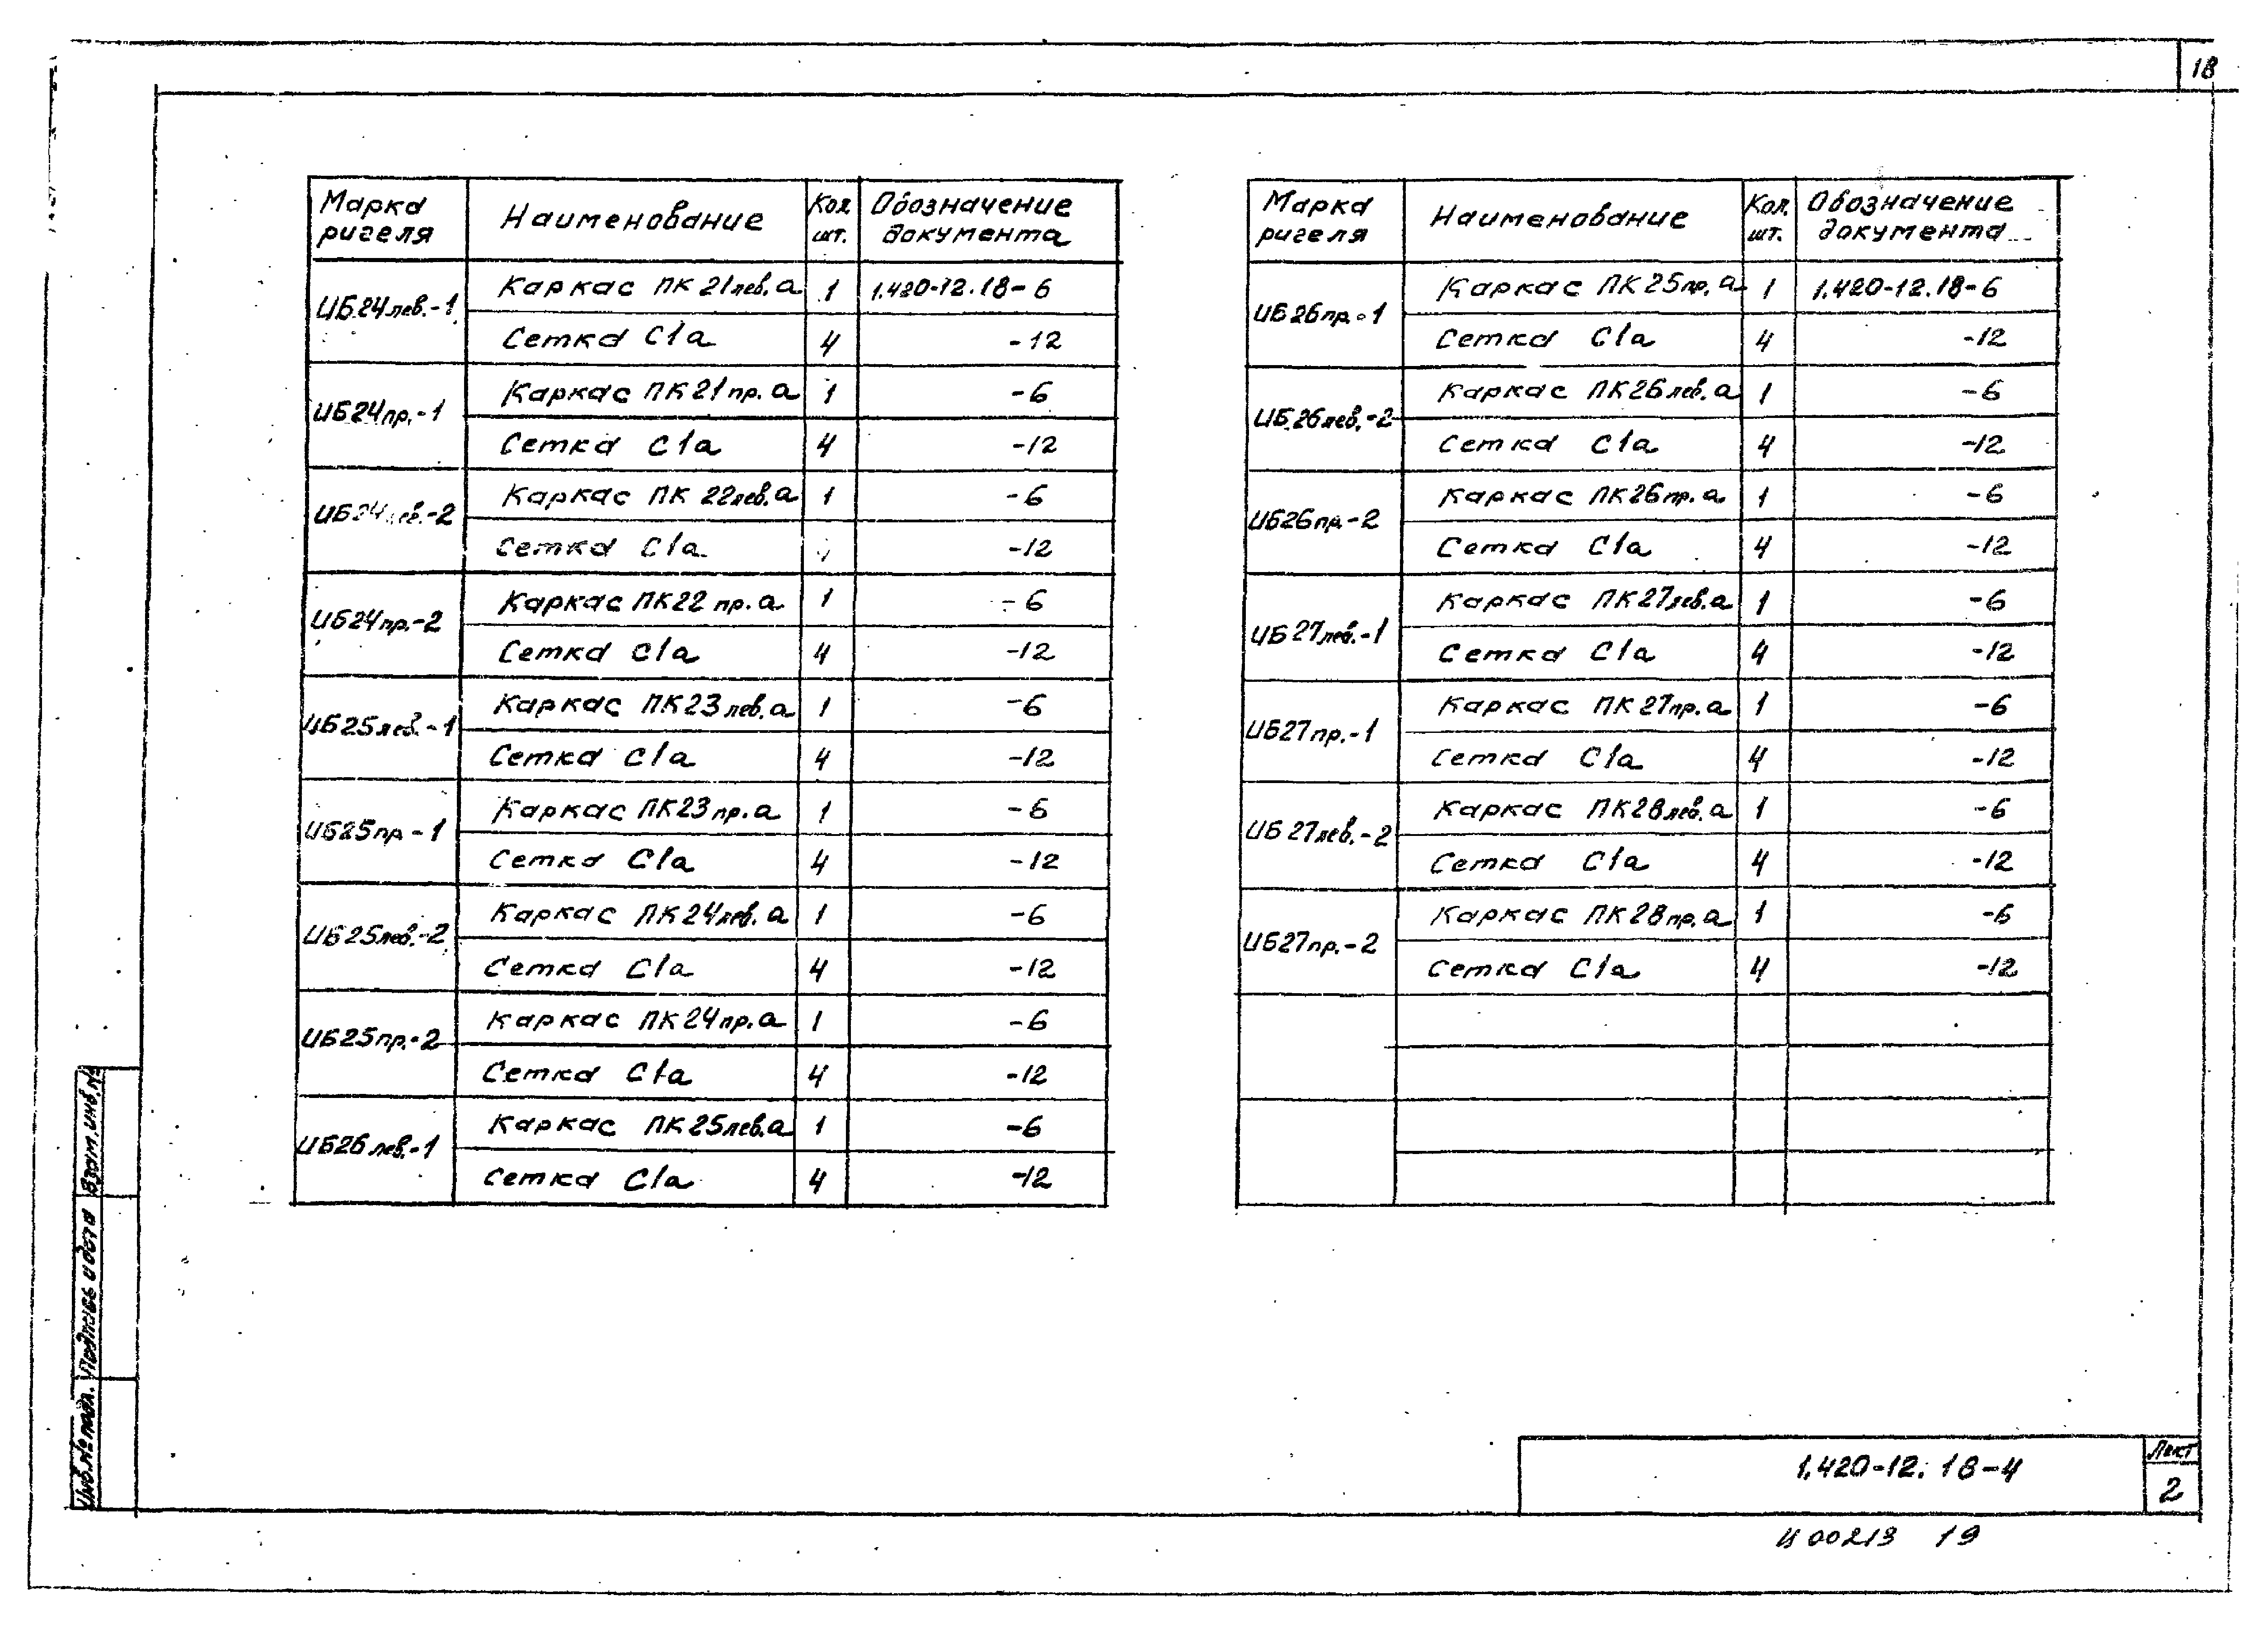 18
Марка ригеля | Наименование | Кол. шт. | Обозначение документа
ИБ24лев.-1 | Каркас ПК21лев.а | 1 | 1.420-12.18-6
Сетка С1а | 4 | -12
ИБ24пр.-1 | Каркас ПК21пр.а | 1 | -6
Сетка С1а | 4 | -12
ИБ24лев.-2 | Каркас ПК22лев.а | 1 | -6
Сетка С1а | | -12
ИБ24пр.-2 | Каркас ПК22пр.а | 1 | -6
Сетка С1а | 4 | -12
ИБ25лев.-1 | Каркас ПК23лев.а | 1 | -6
Сетка С1а | 4 | -12
ИБ25пр-1 | Каркас ПК23пр.а | 1 | -6
Сетка С1а | 4 | -12
ИБ25лев.-2 | Каркас ПК24лев.а | 1 | -6
Сетка С1а | 4 | -12
ИБ25пр.-2 | Каркас ПК24пр.а | 1 | -6
Сетка С1а | 4 | -12
ИБ26лев.-1 | Каркас ПК25лев.а | 1 | -6
Сетка С1а | 4 | -12
Марка ригеля | Наименование | Кол. шт. | Обозначение документа
ИБ26пр.-1 | Каркас ПК25пр.а | 1 | 1.420-12.18-6
Сетка С1а | 4 | -12
ИБ26лев.-2 | Каркас ПК26лев.а | 1 | -6
Сетка С1а | 4 | -12
ИБ26пр.-2 | Каркас ПК26пр.а | 1 | -6
Сетка С1а | 4 | -12
ИБ27лев.-1 | Каркас ПК27лев.а | 1 | -6
Сетка С1а | 4 | -12
ИБ27пр.-1 | Каркас ПК27пр.а | 1 | -6
Сетка С1а | 4 | -12
ИБ27лев.-2 | Каркас ПК28лев.а | 1 | -6
Сетка С1а | 4 | -12
ИБ27пр.-2 | Каркас ПК28пр.а | 1 | -6
Сетка С1а | 4 | -12
Взам.инв.№
Подпись и дата
Инв.№ подл.
1.420-12.18-4
Лист
2
И 00213 19